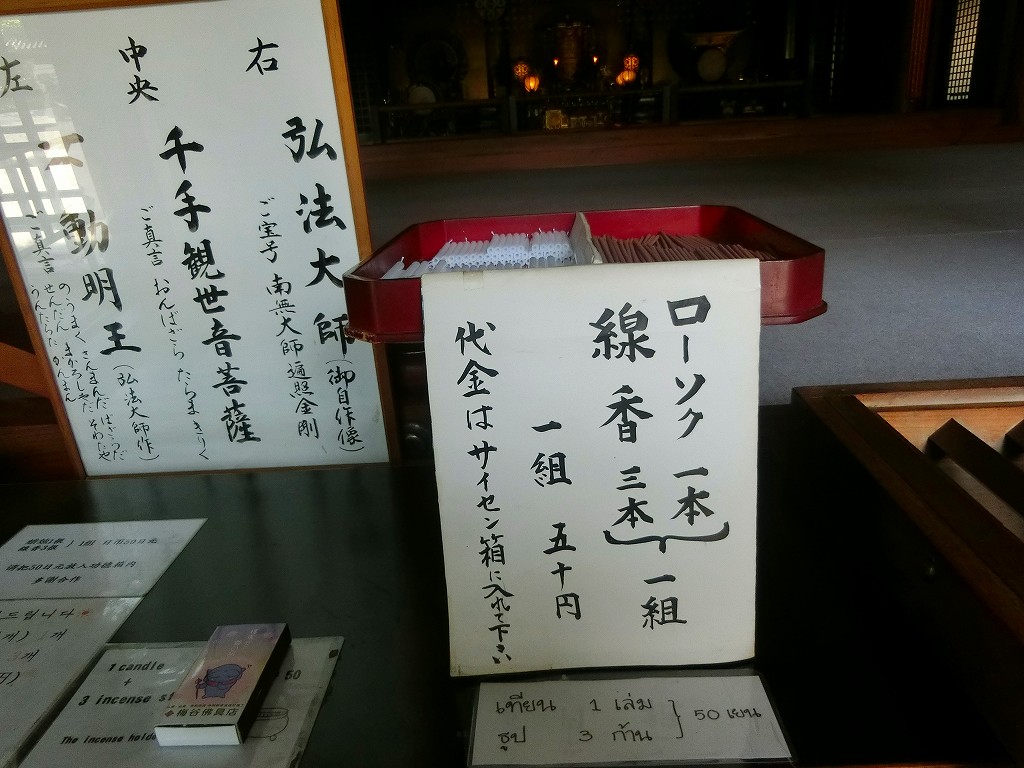 右
弘法大師(御自作像)
ご宝号 南無大師遍照金剛
中央
千手観世音菩薩
ご真言 おんばざら たらまきりく
左
不動明王(弘法大師作)
ご真言 のうまく さんまんだ ばざらだ
せんだん まかろしやだ そわたや
うんたらた かんまん
ローソク 一本
線香 三本
一組
一組 五十円
代金はサイセン箱に入れて下さい
蜡烛1根
線香3根
1組 日币50日元
请把50日元放入功德箱内
多谢合作
드립니다
개) 개
개
1 candle
+
3 incense
50
The incense holde
梅谷佛具店
เทียน 1 เล่ม
ธูป 3 ก้าน
50 เยน